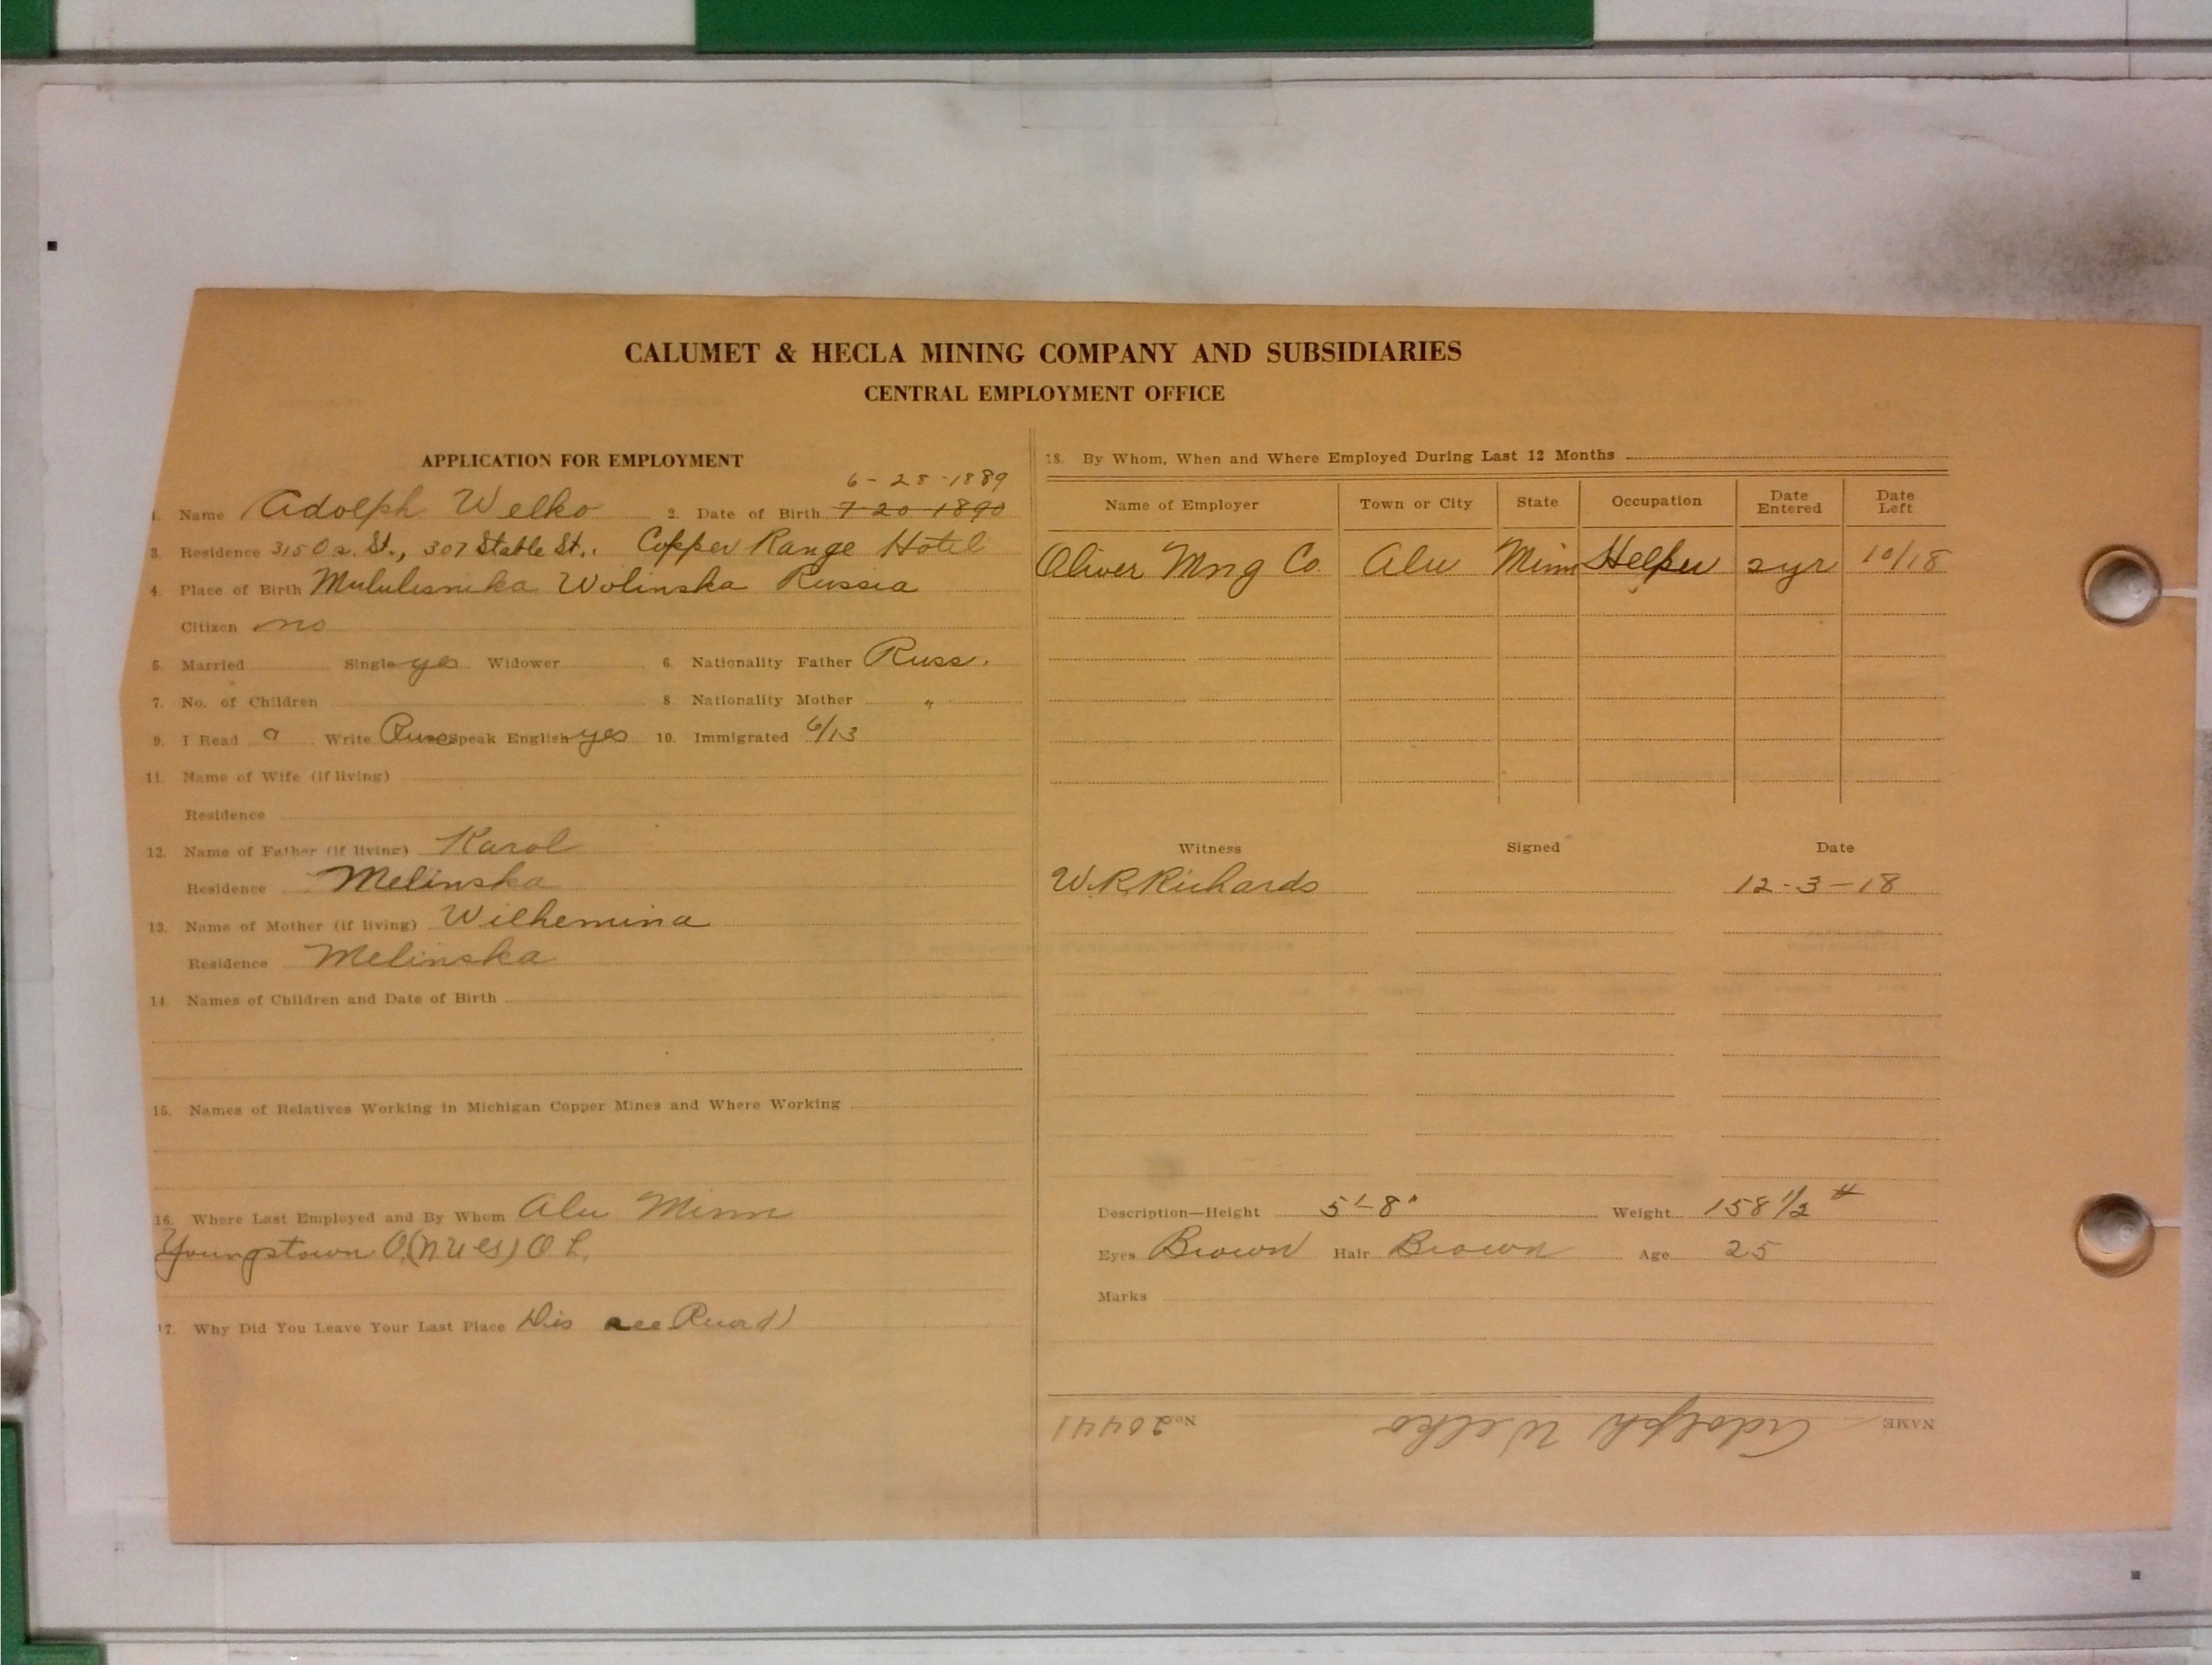 CALUMET & HECLA MINING COMPANY AND SUBSIDIARIES
CENTRAL EMPLOYMENT OFFICE
APPLICATION FOR EMPLOYMENT
6-28-1889
1. Name Adolph Welko 2. Date of Birth 7-20-1890
3. Residence 315 Oa. St., 307 Stable St., Copper Range Hotel
4. Place of Birth Wolinska Russia
Citizen no
5. Married Single yes Widower 6. Nationality Father Russ.
7. No. of Children 8. Nationality Mother "
9. I Read Write Russ Speak English yes 10. Immigrated 6/13
11. Name of Wife (if living)
Residence
12. Name of Father (if living) Karol
Residence Melinska
13. Name of Mother (if living) Wilhemina
Residence Melinska
14. Names of Children and Date of Birth
15. Names of Relatives Working in Michigan Copper Mines and Where Working
16. Where Last Employed and By Whom Alu Minn
Youngstown O.
17. Why Did You Leave Your Last Place Dis see Record)
18. By Whom, When and Where Employed During Last 12 Months
Name of Employer Town or City State Occupation Date Entered Date Left
Oliver Mng Co. Alu Minn Helper 2yr 10/18
Witness Signed Date
W.R. Richards 12-3-18
Description—Height 5'-8" Weight 158 1/2 #
Eyes Brown Hair Brown Age 25
Marks
NAME Adolph Welko No. 20441